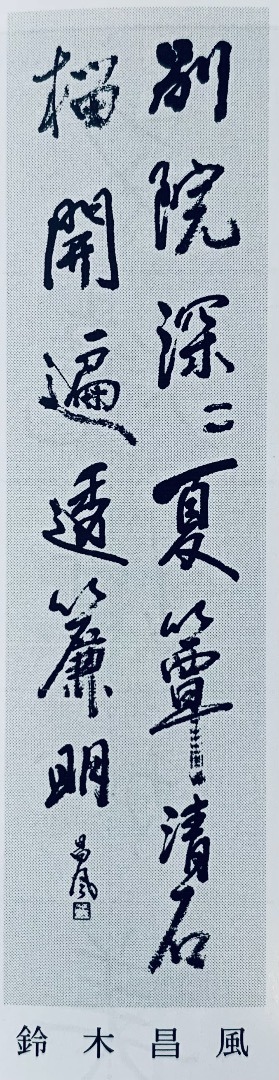 別院深々夏簟清石
榴開遍透簾明
昌風
鈴木昌風